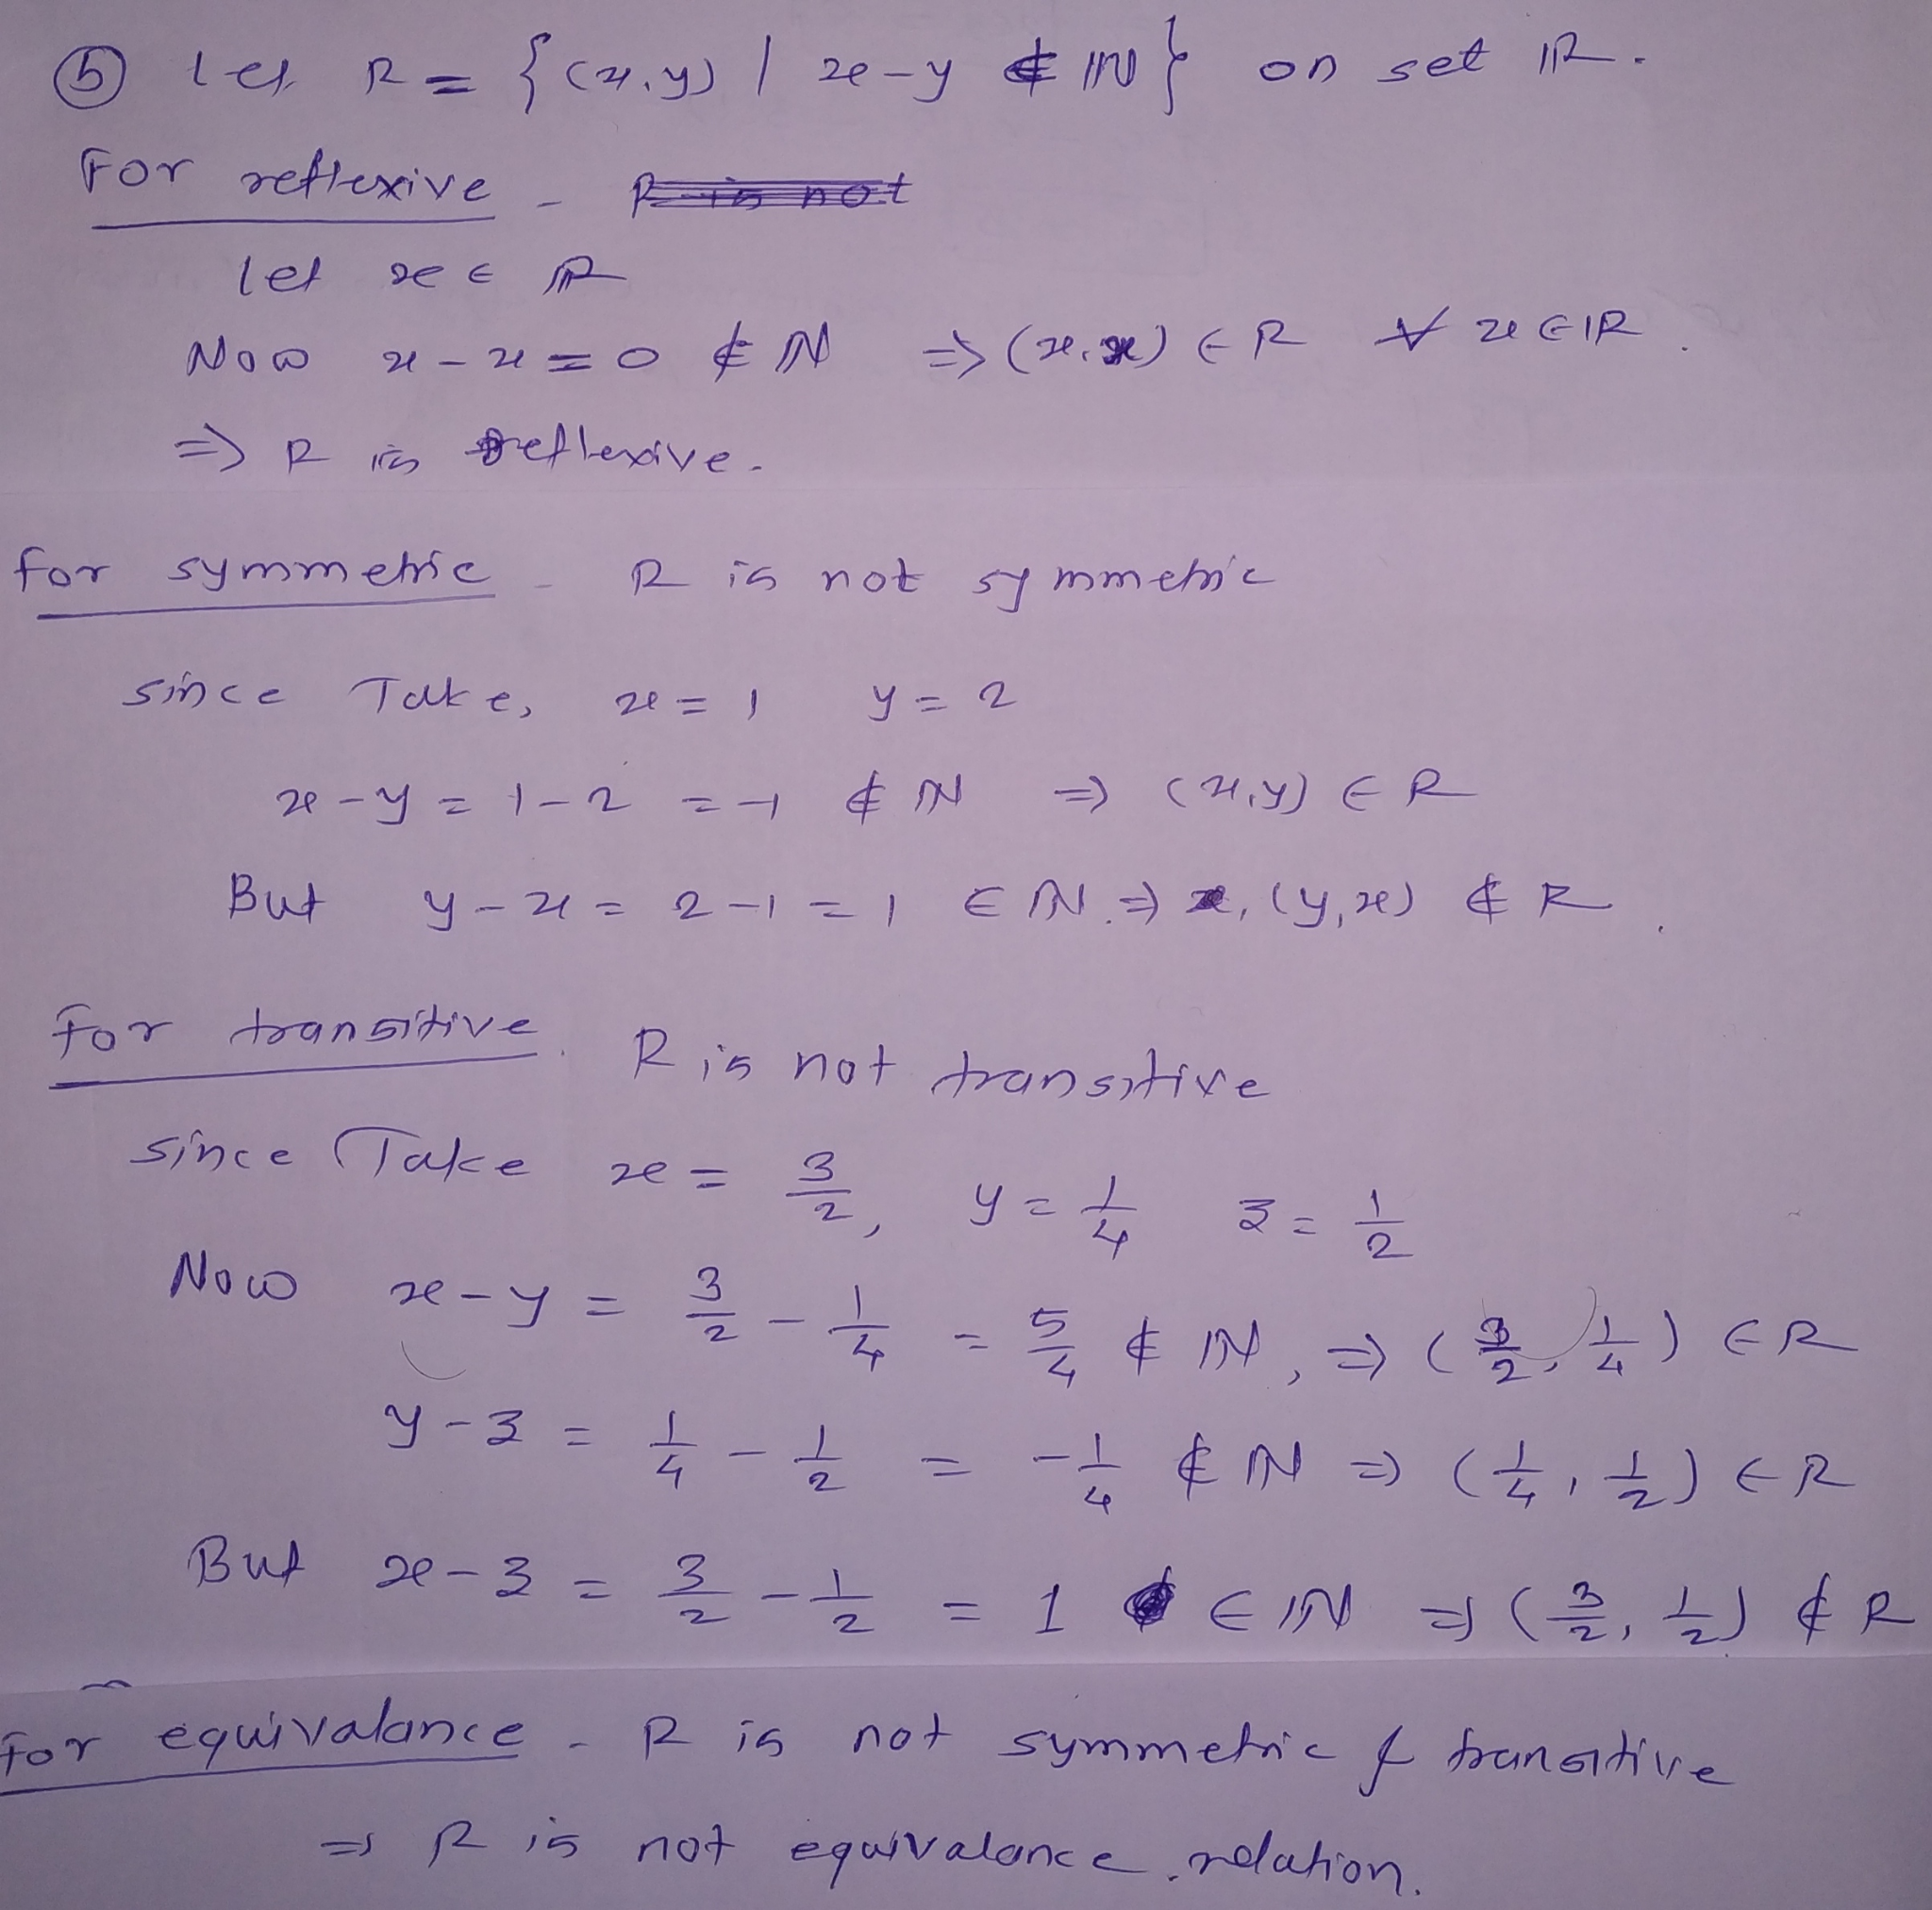 ⑤ let R = { (x,y) | x-y ∉ ℕ } on set ℝ.
For reflexive - R is not
let x ∈ ℝ
Now x-x = 0 ∉ ℕ => (x,x) ∈ R ∀ x ∈ ℝ.
=> R is reflexive.
for symmetric - R is not symmetric
since Take, x = 1 y = 2
x-y = 1-2 = -1 ∉ ℕ => (x,y) ∈ R
But y-x = 2-1 = 1 ∈ ℕ. => (y,x) ∉ R.
for transitive. R is not transitive
since Take x = 3/2, y = 1/4 z = 1/2
Now x-y = 3/2 - 1/4 = 5/4 ∉ ℕ, => (3/2, 1/4) ∈ R
y-z = 1/4 - 1/2 = -1/4 ∉ ℕ => (1/4, 1/2) ∈ R
But x-z = 3/2 - 1/2 = 1 ∈ ℕ => (3/2, 1/2) ∉ R
for equivalance - R is not symmetric & transitive
=> R is not equivalance relation.